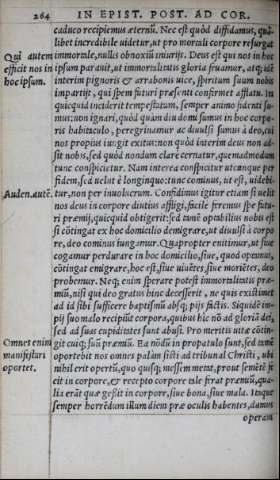 264 IN EPIST. POST. AD COR.
caduco recipiemus æternũ. Nec est quòd diffidamus, quã-
libet incredibile uidetur, ut pro mortali corpore resurgat
Qui autem immortale, nullis obnoxiũ iniurijs. Deus est qui nos in hoc
efficit nos in ipsum parauit, ut immortalitatis gloria fruamur, atq; idē
hoc ipsum. interim pignoris & arrabonis uice, spiritum suum nobis
impartijt, qui spem futuri præsenti confirmet afflatu. In
quicquid inciderit tempestatum, semper animo fidenti su-
mus: non ignari, quòd quàm diu domi sumus in hoc corpo-
ris habitaculo, peregrinamur ac diuulsi sumus à deo, cui
nos propius iungit exitus: non quòd interim deus non ad-
sit nobis, sed quòd nondum clare cernatur, quemadmodum
tunc conspicietur. Nam interea conspicitur utcunque per
fidem, sed uelut è longinquo: tunc cominus, ut est, uidebi-
Auden. autē. tur, non per inuolucrum. Confidimus igitur etiam si uelit
nos deus in corpore diutius affligi, facile feremus spe futu-
ri præmij, quicquid obtigerit: sed tunc optabilius nobis est
si cōtingat ex hoc domicilio demigrare, ut diuulsi à corpo
re, deo cominus iungamur. Quapropter enitimur, ut siue
cogamur perdurare in hoc domicilio, siue, quod optamus,
cōtingat emigrare, hoc est, siue uiuētes, siue moriētes, deo
probemur. Neq; enim sperare potest immortalitatis præ-
miũ, nisi qui deo gratus hinc decesserit, ne quis existimet
ad id sibi sufficere baptismũ absq; pijs factis. Siquidē im-
pij suo malo recipiũt corpora, quibus hic nō ad gloriã dei,
sed ad suas cupiditates sunt abusi. Pro meritis uitæ cōtin-
Omnet enim git cuiq; suũ præmiũ. Ea nōdũ in propatulo sunt, sed tunc
manifestari oportebit nos omnes palàm sisti ad tribunal Christi, ubi
oportet. nihil erit opertũ, quo quisq; messem metat, prout semētē fe
cit in corpore, & recepto corpore tale ferat præmiũ, qua-
lia erāt quæ gessit in corpore, siue bona, siue mala. Itaque
semper horrēdam illum diem præ oculis habentes, damus
operam